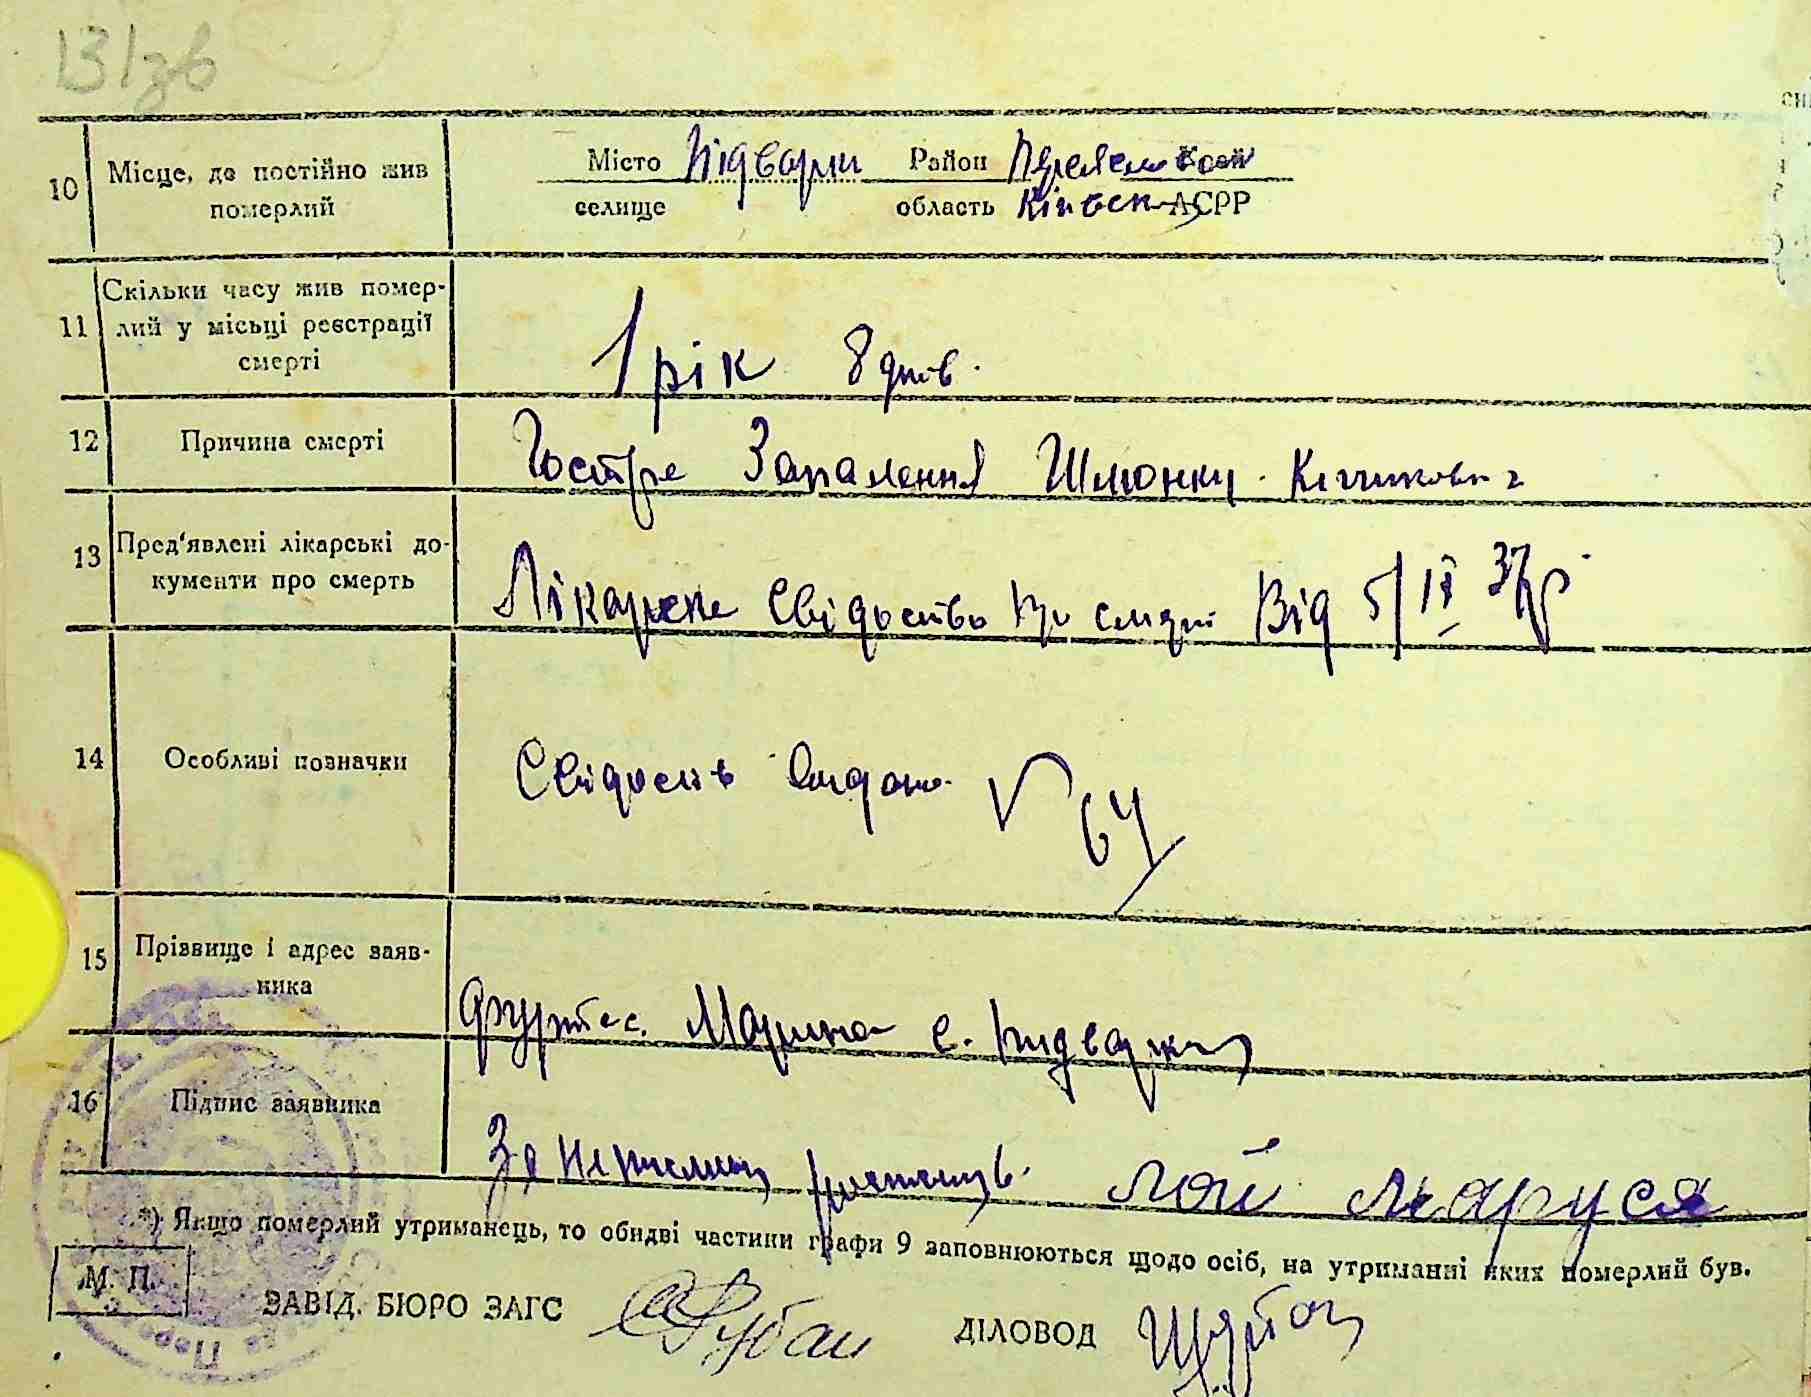 131зв
10 Місце, де постійно жив Місто Підварки Район Переяславський
померлий селище область Київська АСРР
11 Скільки часу жив помер-
лий у місьці реєстрації
смерті 1 рік 8 днів.
12 Причина смерті Гостре Запалення Шлюнку
13 Пред'явлені лікарські до-
кументи про смерть Лікарске Свідоство про смерть Від 5/IX 37р
14 Особливі позначки Свідоств видано 64
15 Прізвище і адрес заяв-
ника Марина с. Підварки
16 Підпис заявника За неписьмену Лой Маруся
*) Якщо померлий утриманець, то обидві частини графи 9 заповнюються щодо осіб, на утриманні яких померлий був.
М. П.
ЗАВІД. БЮРО ЗАГС Рубан ДІЛОВОД